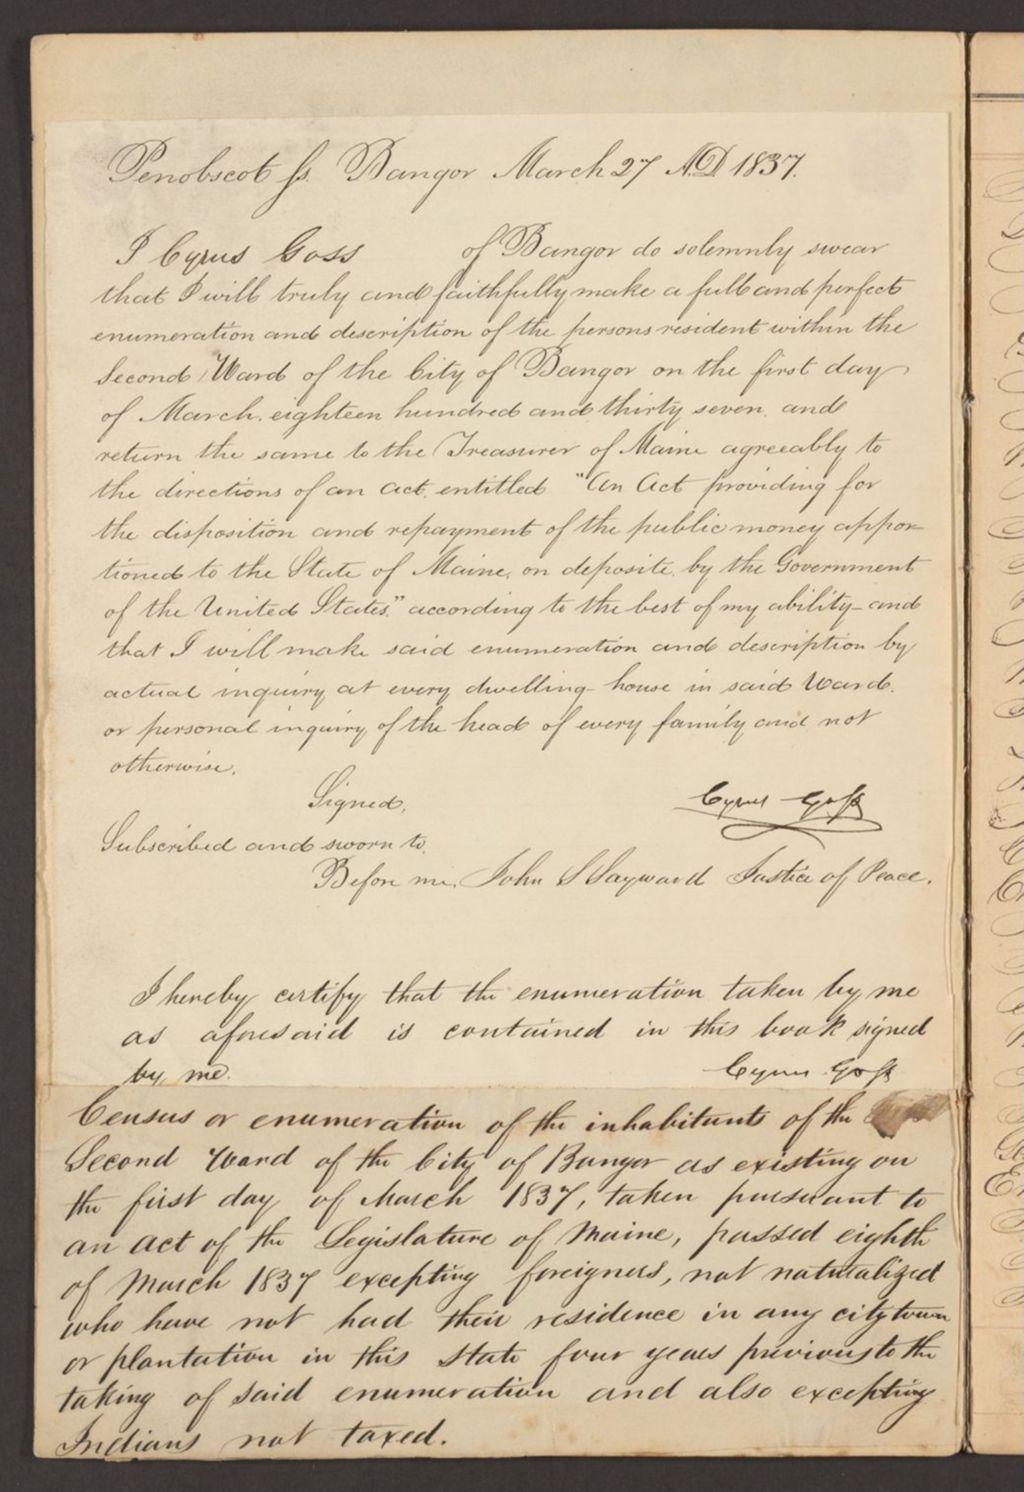 Penobscot ss. Bangor March 27 A.D. 1837.
I Cyrus Goss of Bangor do solemnly swear
that I will truly and faithfully make a full and perfect
enumeration and description of the persons resident within the
Second Ward of the City of Bangor on the first day
of March, eighteen hundred and thirty seven, and
return the same to the Treasurer of Maine agreeably to
the directions of an act, entitled "An Act providing for
the disposition and repayment of the public money appor-
tioned to the State of Maine, on deposite, by the Government
of the United States," according to the best of my ability - and
that I will make said enumeration and description by
actual inquiry at every dwelling-house in said Ward,
or personal inquiry of the head of every family and not
otherwise.
Signed, Cyrus Goss
Subscribed and sworn to.
Before me, John S Sayward Justice of Peace.
I hereby certify that the enumeration taken by me
as aforesaid is contained in this book signed
by me. Cyrus Goss
Census or enumeration of the inhabitants of the
Second Ward of the City of Bangor as existing on
the first day of March 1837, taken pursuant to
an act of the Legislature of Maine, passed eighth
of March 1837 excepting foreigners, not naturalized
who have not had their residence in any city town
or plantation in this State four years previous to the
taking of said enumeration and also excepting
Indians not taxed.